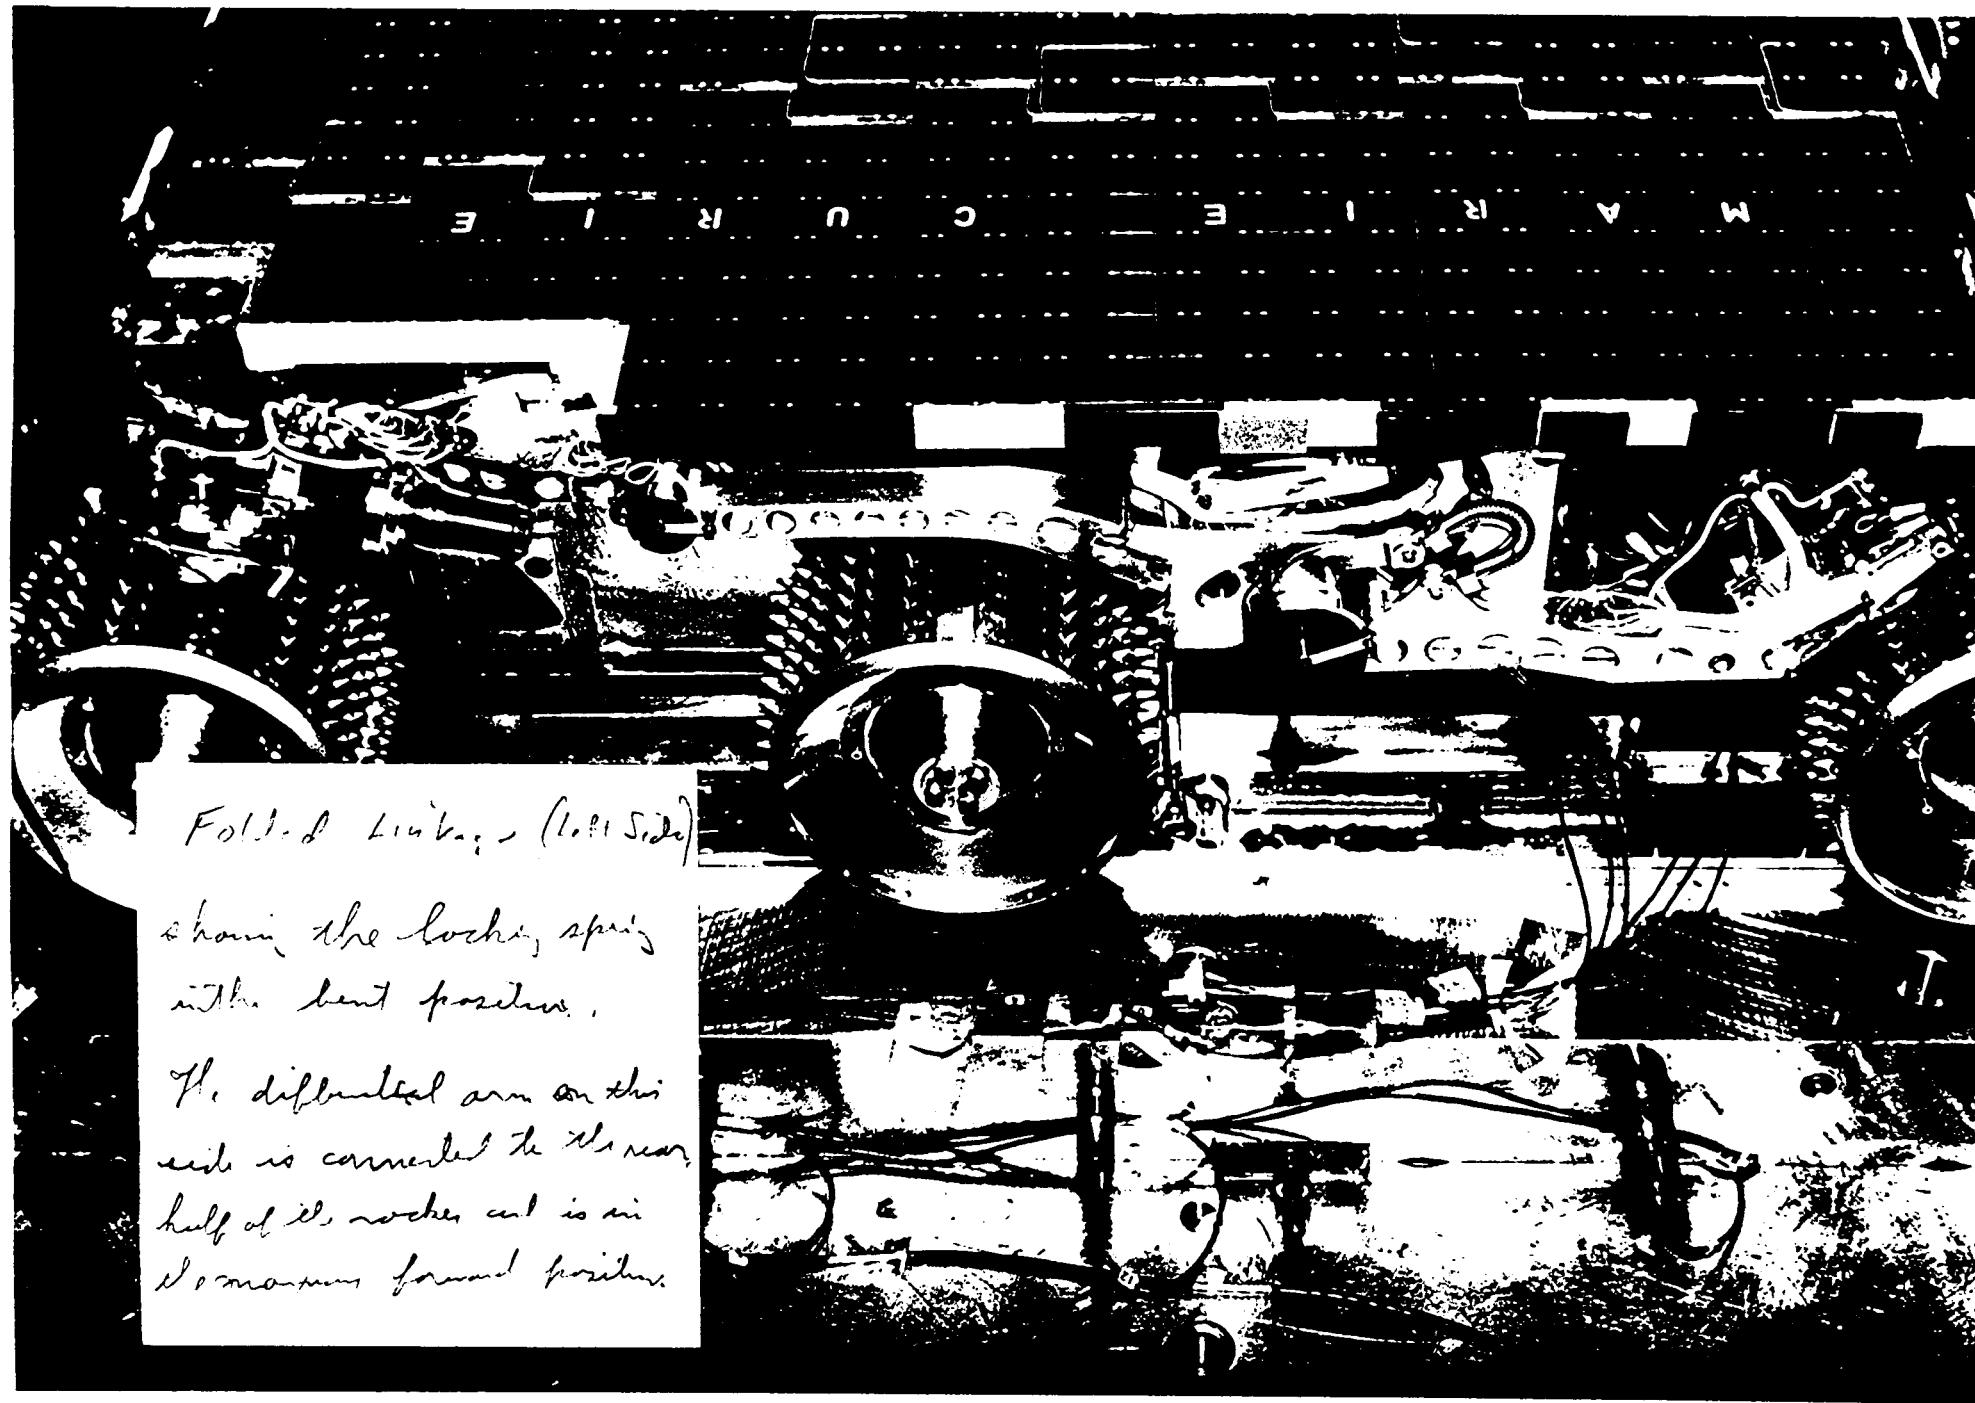 MARIE CURIE
Folded Linkage (Left Side)
showing the locking spring
in the bent position.
The differential arm on this
side is connected to the rear
half of the rocker and is in
the maximum forward position.